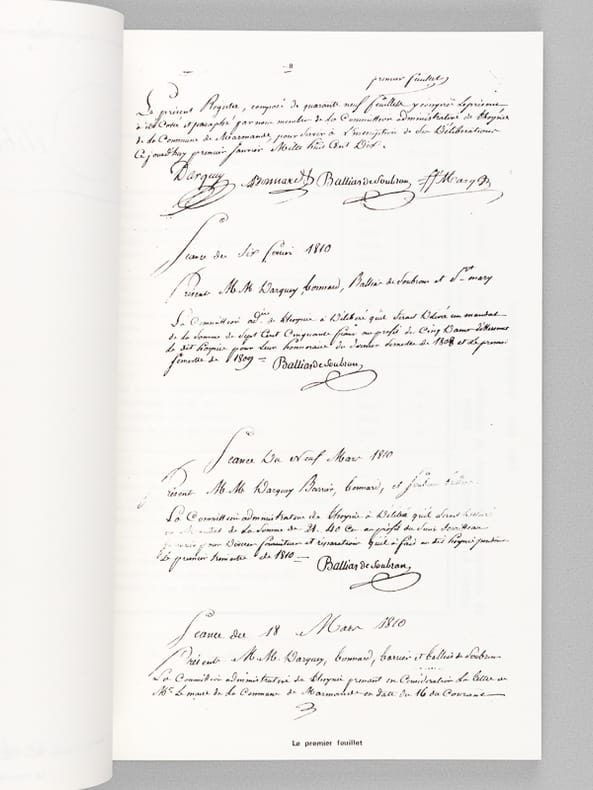 8
premier feuillet
Le présent Registre, composé de quarante neuf feuillets y compris le présent
a été Cotté et paraphé par nous membres de la Committion administrative de l'hospice
de la Commune de Marmande, pour Servir à l'inscription de Ses Délibérations
Ce jourdhuy premier Janvier Mille huit Cent Dix.
Darquey Bonnard Ballias de Soubran
Seance du Six fevrier 1810
Présent M M Darquey, bonnard, Balliás de Soubran et St mary
La Committion adve de l'hospice a Délibéré qu'il Serait Délivré un mandat
de la Somme de Sept Cent Cinquante francs au profit de Cinq Dames
du dit hospice pour Leur honoraire du dernier Semestre de 1808 et Le premier
Semestre de 1809
Balliás de Soubran
Seance Du Neuf Mars 1810
Présent M. M. Darquey Barrier, bonnard, et
La Committion administrative de l'hospice a Délibéré qu'il Serait
un Mandat de La Somme de 21. 40 Ces au profit du Sieur
pour Diverses fournitures et réparations qu'il a fait au dit hospice pendant
Le premier trimestre de 1810
Balliás de Soubran
Seance du 18 Mars 1810
Présents M. M. Darquey, bonnard, barrier et balliás de Soubran
La Committion administrative de l'hospice prenant en Considération La lettre de
Mr Le maire de La Commune de Marmande en datte du 16 du Courant
Le premier fouillet